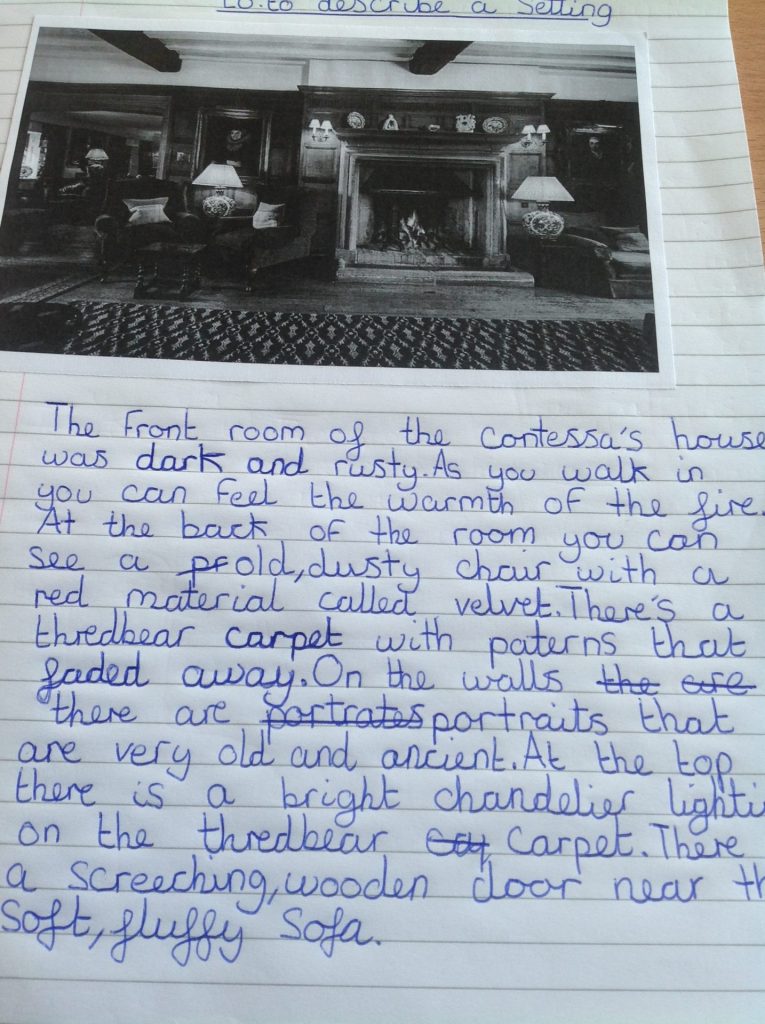 LO:to describe a setting
The front room of the contessa's house
was dark and rusty.As you walk in
you can feel the warmth of the fire.
At the back of the room you can
see a pr old,dusty chair with a
red material called velvet.There's a
thredbear carpet with paterns that
faded away.On the walls the are
there are portrates portraits that
are very old and ancient.At the top
there is a bright chandelier lighti
on the thredbear Carpet.There
a screeching,wooden door near th
soft,fluffy sofa.